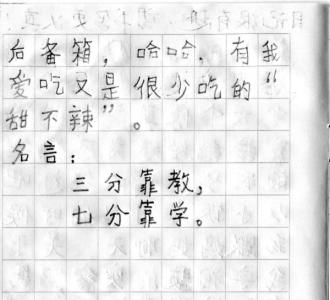 后备箱，哈哈，有我
爱吃又是很少吃的“
甜不辣”。
名言：
三分靠教，
七分靠学。